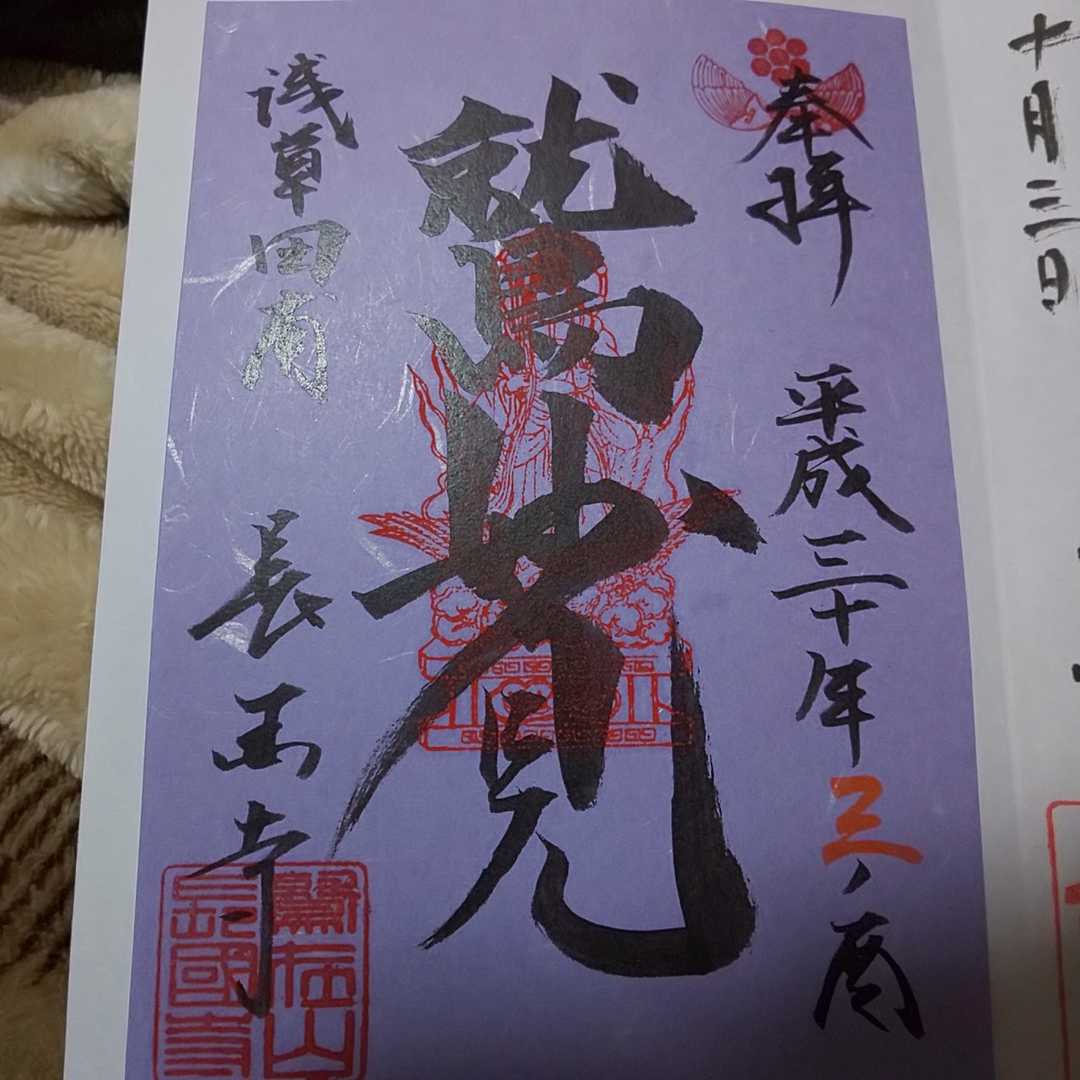 十月三日
奉拝
平成三十年三ノ酉
鷲妙見
浅草田甫
長国寺
鷲在山
長國寺